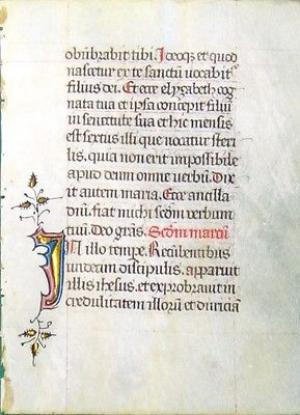 obūbrabit tibi. Ideoqȝ et quod
nascetur ex te sanctū vocabit᷑
filius dei. Et ecce elyzabeth cog
nata tua et ipsa concepit filiū
in senectute sua et hic mensis
est sextus illi que vocatur steri
lis. quia non erit impossibile
apud deum omne verbū. Dix
it autem maria. Ecce ancilla
dn̄i. fiat michi scd̄m verbum
tuū. Deo grās. Scd̄m marcū
In illo tempe. Recūbentibus
undecim discipulis. apparuit
illis ihesus. et exprobravit in
credulitatem illorū et duriciā